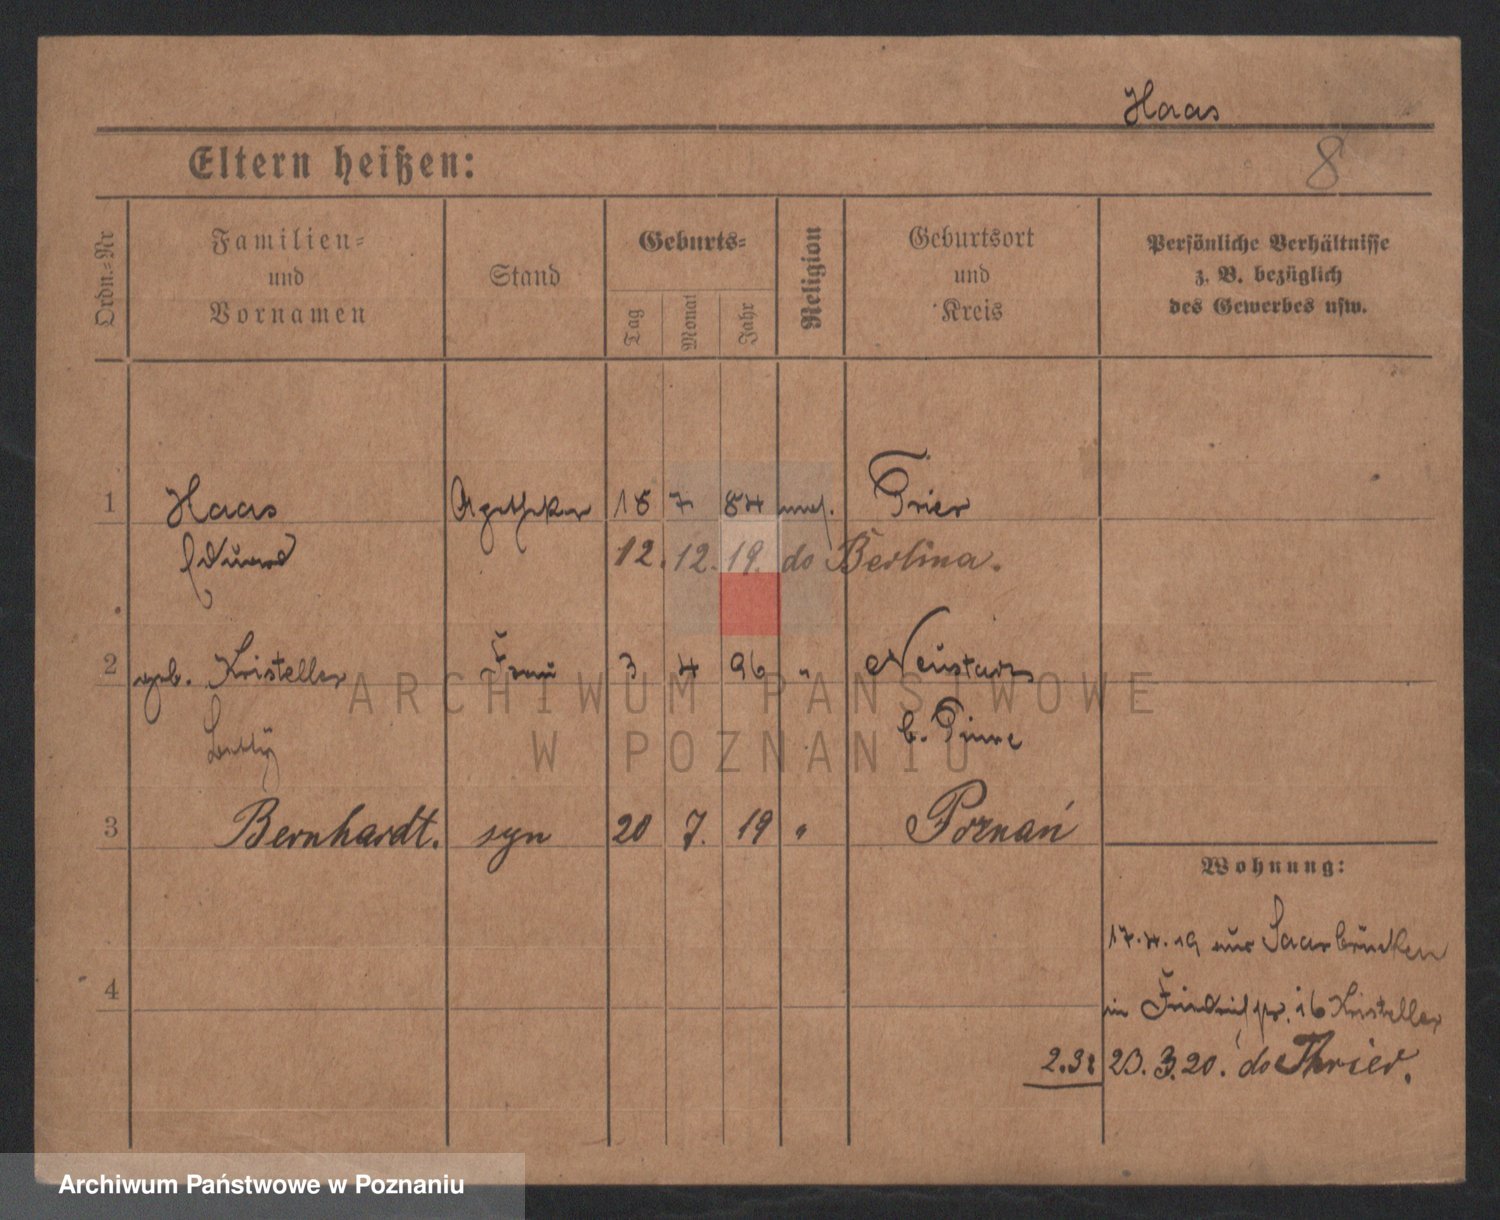 Haas
Eltern heißen:
8
Ordn.=Nr
Familien=
und
Vornamen
Stand
Geburts=
Tag
Monat
Jahr
Religion
Geburtsort
und
Kreis
Persönliche Verhältnisse
z. B. bezüglich
des Gewerbes usw.
1 Haas Apotheker 18 7 84 mos. Trier
Eduard 12. 12. 19. do Berlina.
2 geb. Kristeller Frau 3 4 96 " Neustadt
Betty b. Pinne
3 Bernhardt. syn 20 7. 19 " Poznań
Wohnung:
17.4.19 aus Saarbrücken
4
in Friedrichstr. 16 Kristeller
2.38 23.3.20. do Thrier.
ARCHIWUM PAŃSTWOWE
W POZNANIU
Archiwum Państwowe w Poznaniu